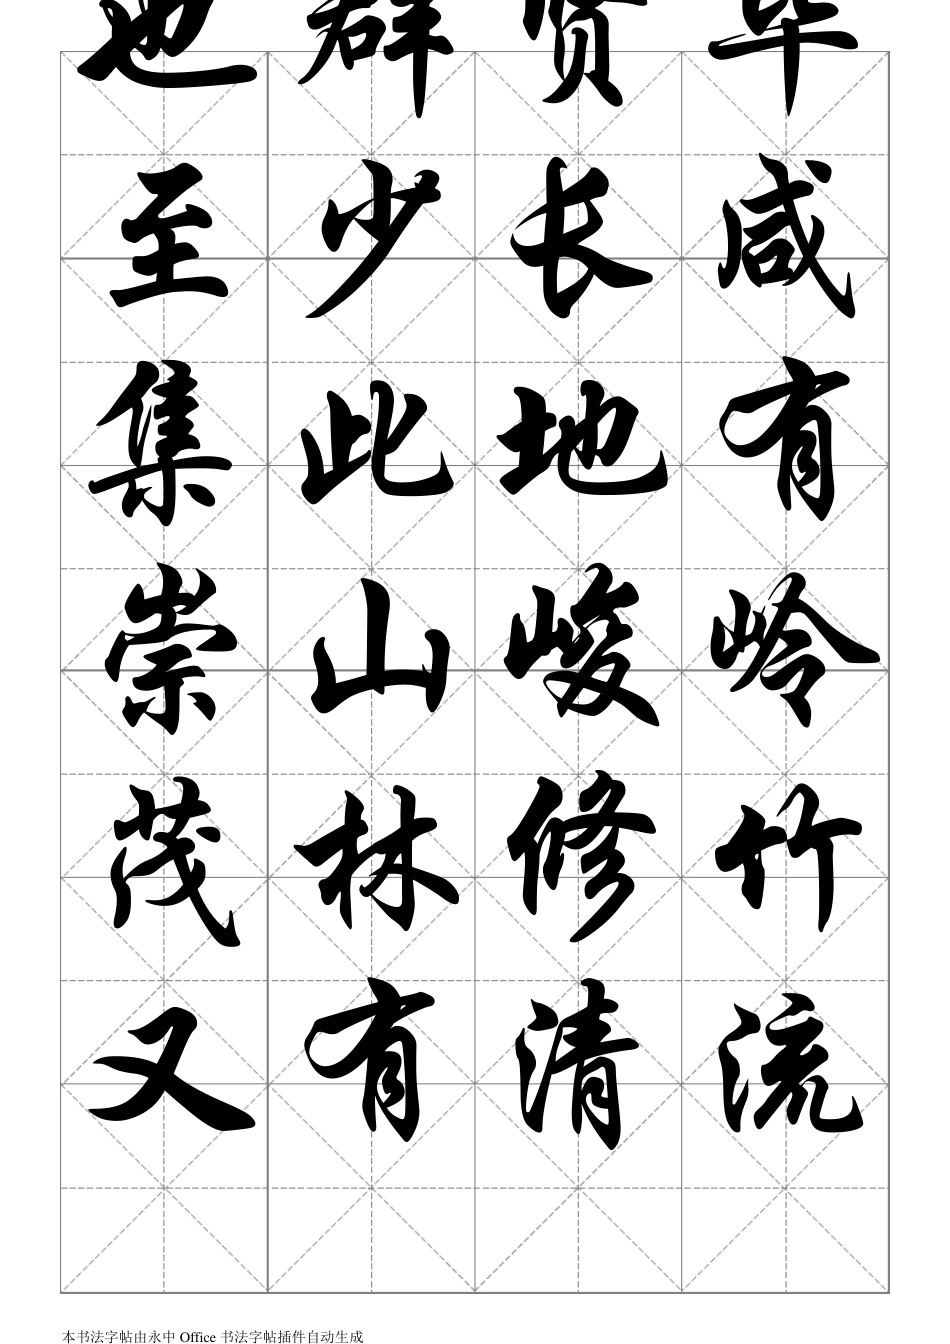 也群贤毕
至少长咸
集此地有
崇山峻岭
茂林修竹
又有清流
本书法字帖由永中 Office 书法字帖插件自动生成